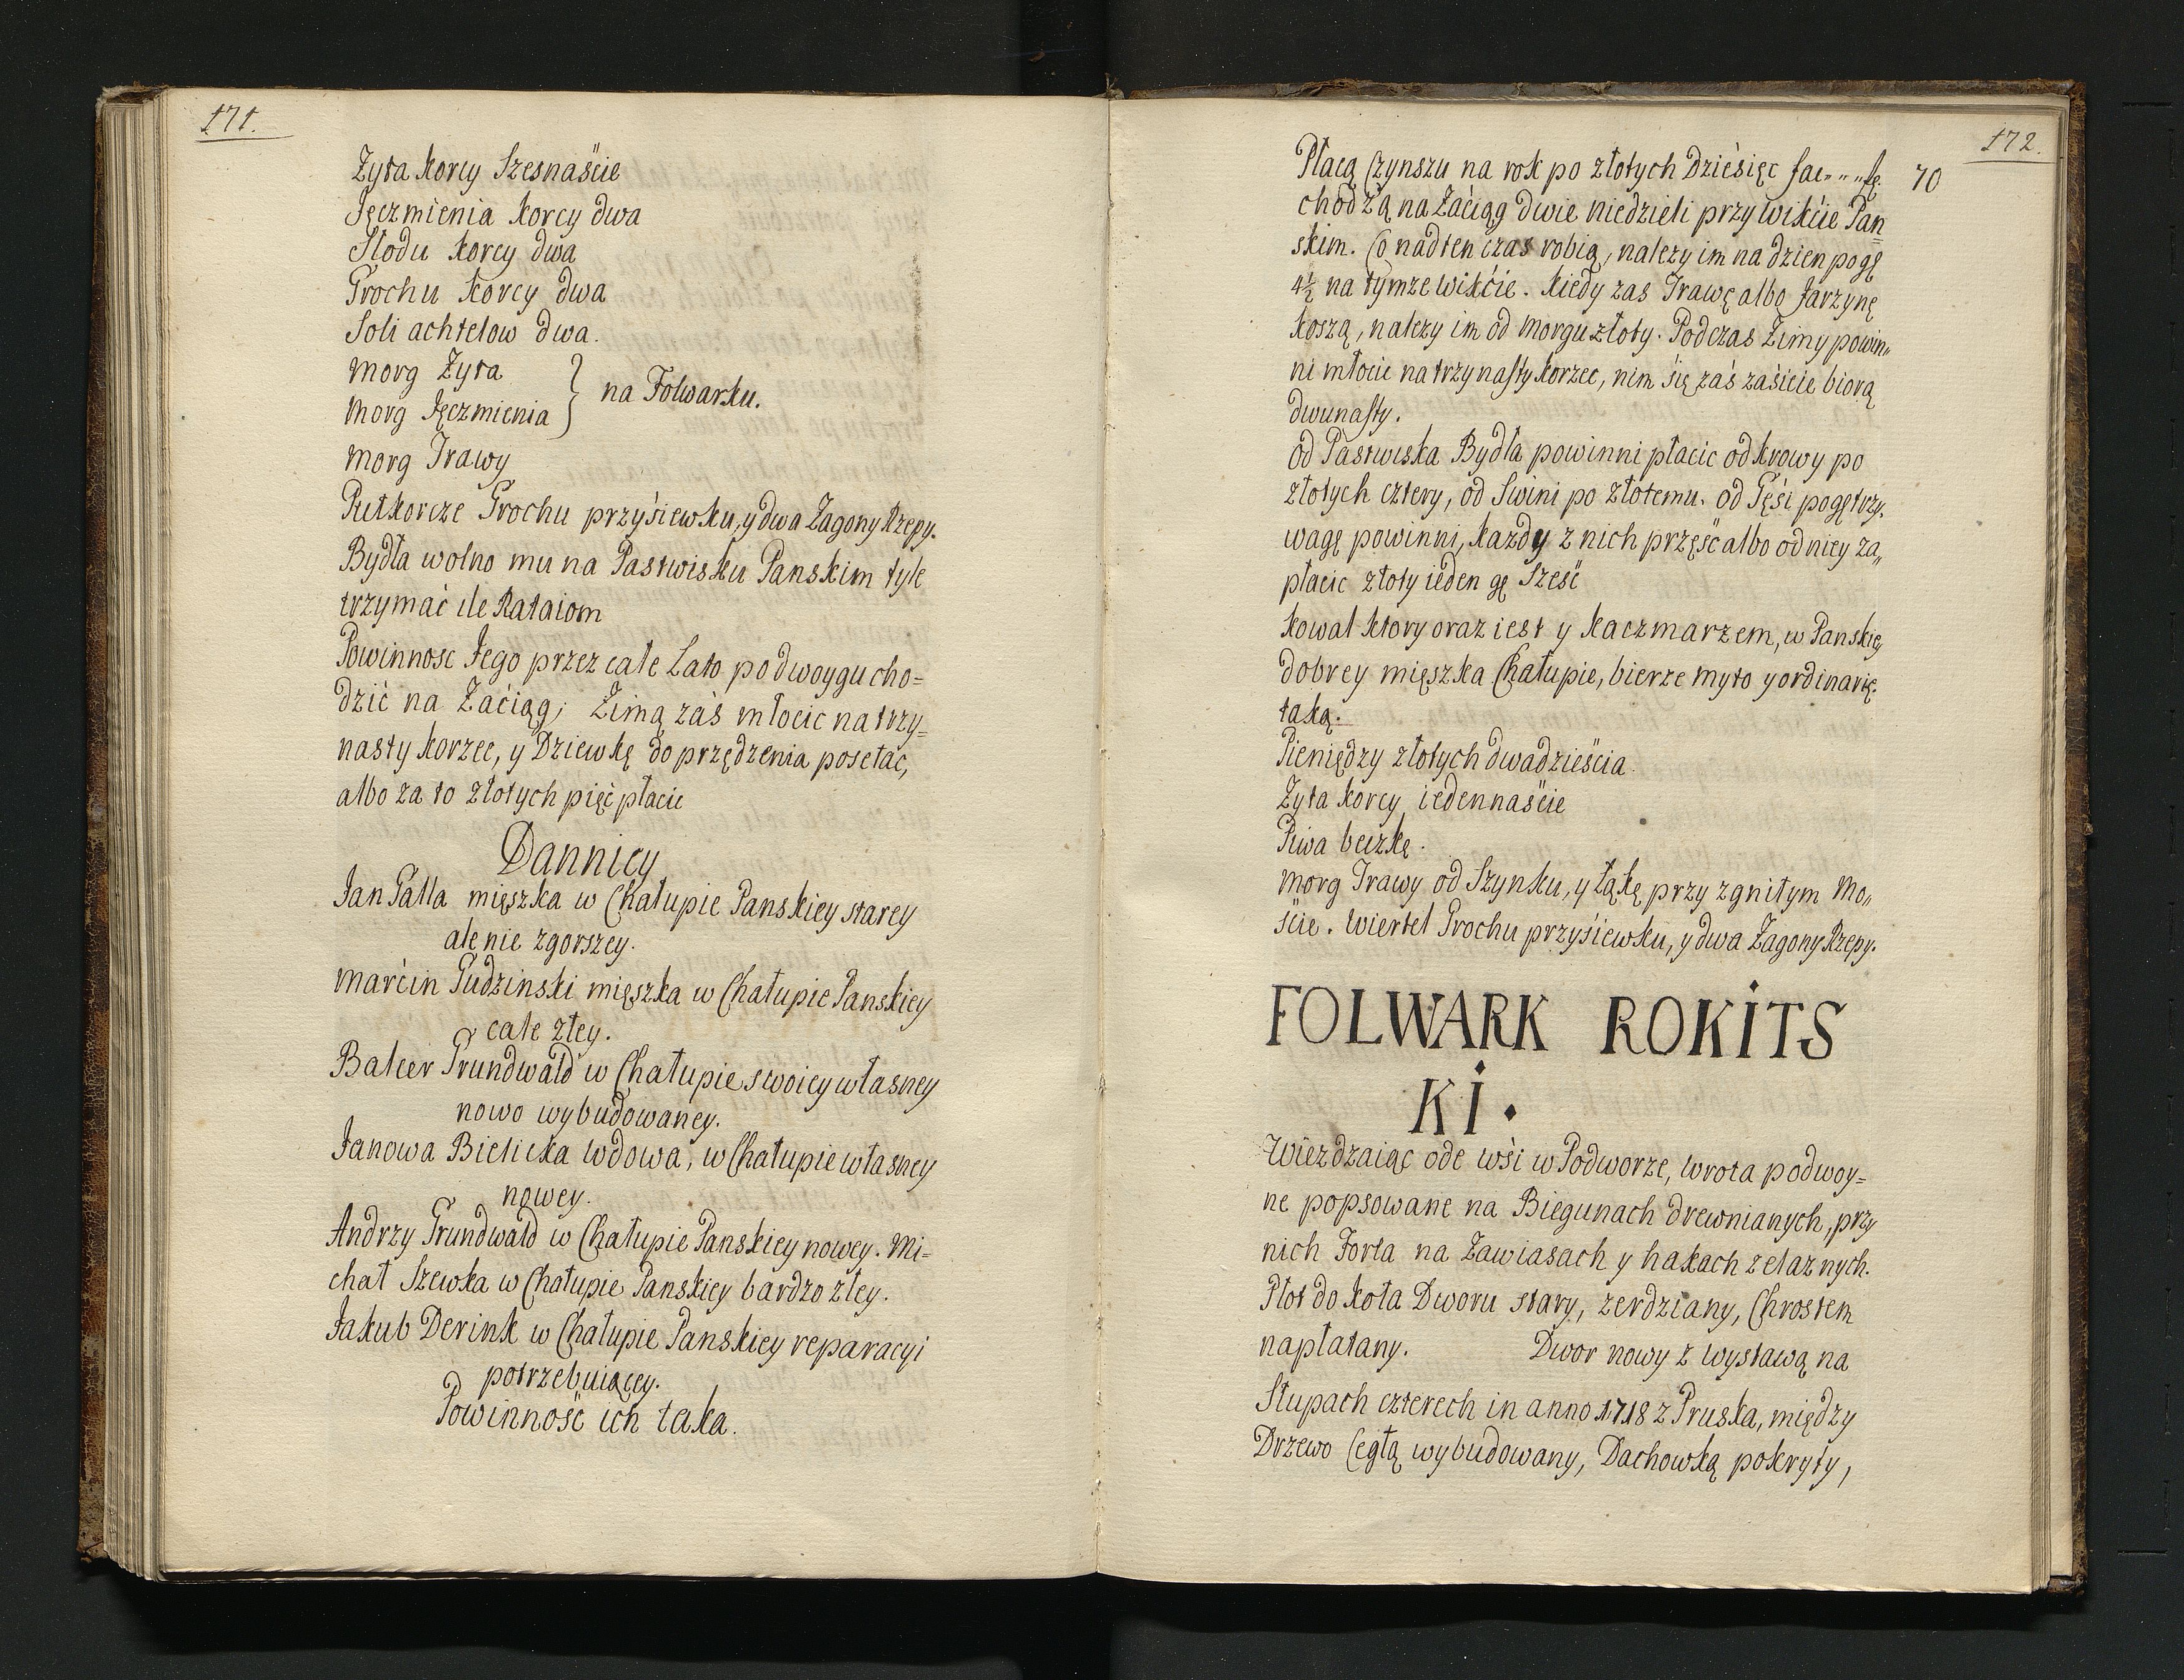 171.
Zyta korcy Szesnaście
Jęczmienia korcy dwa
Słodu korcy dwa
Grochu korcy dwa
Soli achtelow dwa.
Morg Zyta
Morg Jęczmienia } na Folwarku.
Morg Trawy
Pułkorcze Grochu przysiewku, y dwa Zagony Rzepy.
Bydła wolno mu na Pastwisku Panskim tyle
trzymać ile Rataiom
Powinnosc Jego przez całe Lato po dwoygu cho=
dzić na Zaciąg; Zimą zaś młocic na trzy=
nasty korzec, y Dziewkę do przędzenia posełac,
albo za to złotych pięć płacic
Dannicy
Jan Palla mięszka w Chałupie Panskiey starey
ale nie zgorszey.
Marcin Gudzinski mięszka w Chałupie Panskiey
cale złey.
Balcer Grundwałd w Chałupie swoiey własney
nowo wybudowaney.
Janowa Bielicka Wdowa, w Chałupie własney
nowey.
Andrzy Grundwałd w Chałupie Panskiey nowey. Mi=
chał Szewka w Chałupie Panskiey bardzo złey.
Jakub Derink w Chałupie Panskiey reparacyi
potrzebuiącey.
Powinność ich taka.
172.
Płacą Czynszu na rok po złotych Dziesięc fac " " " fę. 70
chodzą na Zaciąg dwie niedzieli przy wikcie Pan=
skim. Co nad ten czas robią, nalezy im na dzien po gę
4½ na tymze wikcie. Kiedy zas Trawę albo Jarzynę
koszą, nalezy im od morgu złoty. Podczas Zimy powin"
ni młocic na trzynasty korzec, nim się zaś zasicie biorą
dwunasty.
od Pastwiska Bydła powinni płacic od krowy po
złotych cztery, od Swini po złotemu. od Gęsi po gę trzy.
wagę powinni, kazdy z nich prząść albo od niey za"
płacic złoty ieden gę Sześć
Kowal ktory oraz iest y kaczmarzem, w Panskiey
dobrey mięszka Chałupie, bierze myto y ordinarię
taką.
Pieniędzy złotych dwadzieścia
Zyta korcy iedennaście
Piwa beczkę.
Morg Trawy od Szynku, y łąkę przy zgniłym Mo"
ście. Wiertel Grochu przysiewku, y dwa Zagony Rzepy.
FOLWARK ROKITS
KI.
Wiezdzaiąc ode wsi w Podworze, Wrota podwoy=
ne popsowane na Biegunach drewnianych, przy
nich Forta na Zawiasach y hakach zelaznych.
Płot do koła Dworu stary, zerdziany, Chrostem
napłatany. Dwor nowy z Wystawą na
Słupach czterech in anno 1718 z Pruska, między
Drzewo Cegłą wybudowany, Dachowką pokryty,